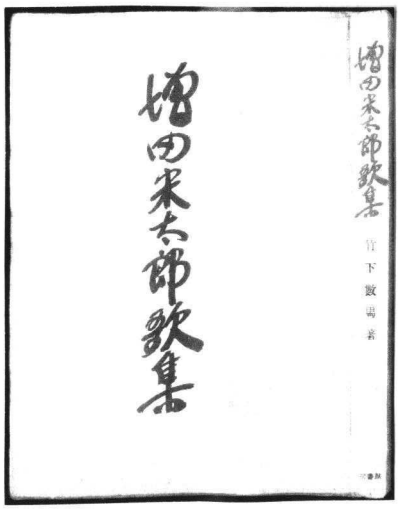 増田米太郎歌集
増田米太郎歌集
竹下数馬著